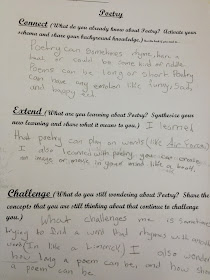 Poetry
Connect (What do you already know about Poetry? Activate your
schema and share your background knowledge.)
Poetry can sometimes rhyme, have a
beat or could be some kind of riddle.
Poems can be long or short. Poetry
can have any emotion like funny, sad
and happy
Extend (What are you learning about Poetry? Synthesize your
new learning and share what it means to you.) I learned
that poetry can play on words (like dic force)
I also learned with poetry you can create
an image or movie in your mind like a book.
Challenge (What do you still wondering about Poetry? Share the
concepts that you are still thinking about that continue to challenge
you.) What challenges me is sometimes
trying to find a word that rhymes with another
word (In like a Limerick) I also wonder
how long a poem can be, and how short
a poem can be.